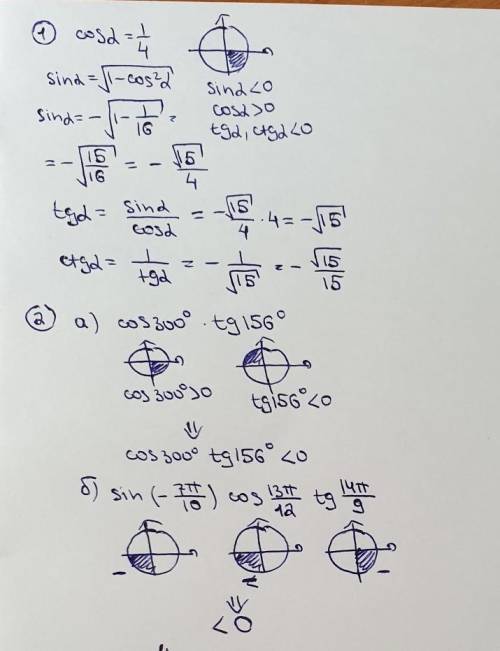 ① cosα = 1/4
sinα = √(1-cos²α)
sinα<0
cosα>0
tgα, ctgα<0
sinα = -√(1-1/16) =
= -√(15/16) = -√15/4
tgα = sinα/cosα = -√15/4 · 4 = -√15
ctgα = 1/tgα = -1/√15 = -√15/15
② а) cos300° · tg156°
cos300°>0 tg156°<0
⇓
cos300° tg156° <0
б) sin(-7π/10) cos 13π/12 tg 14π/9
- - -
⇓
<0